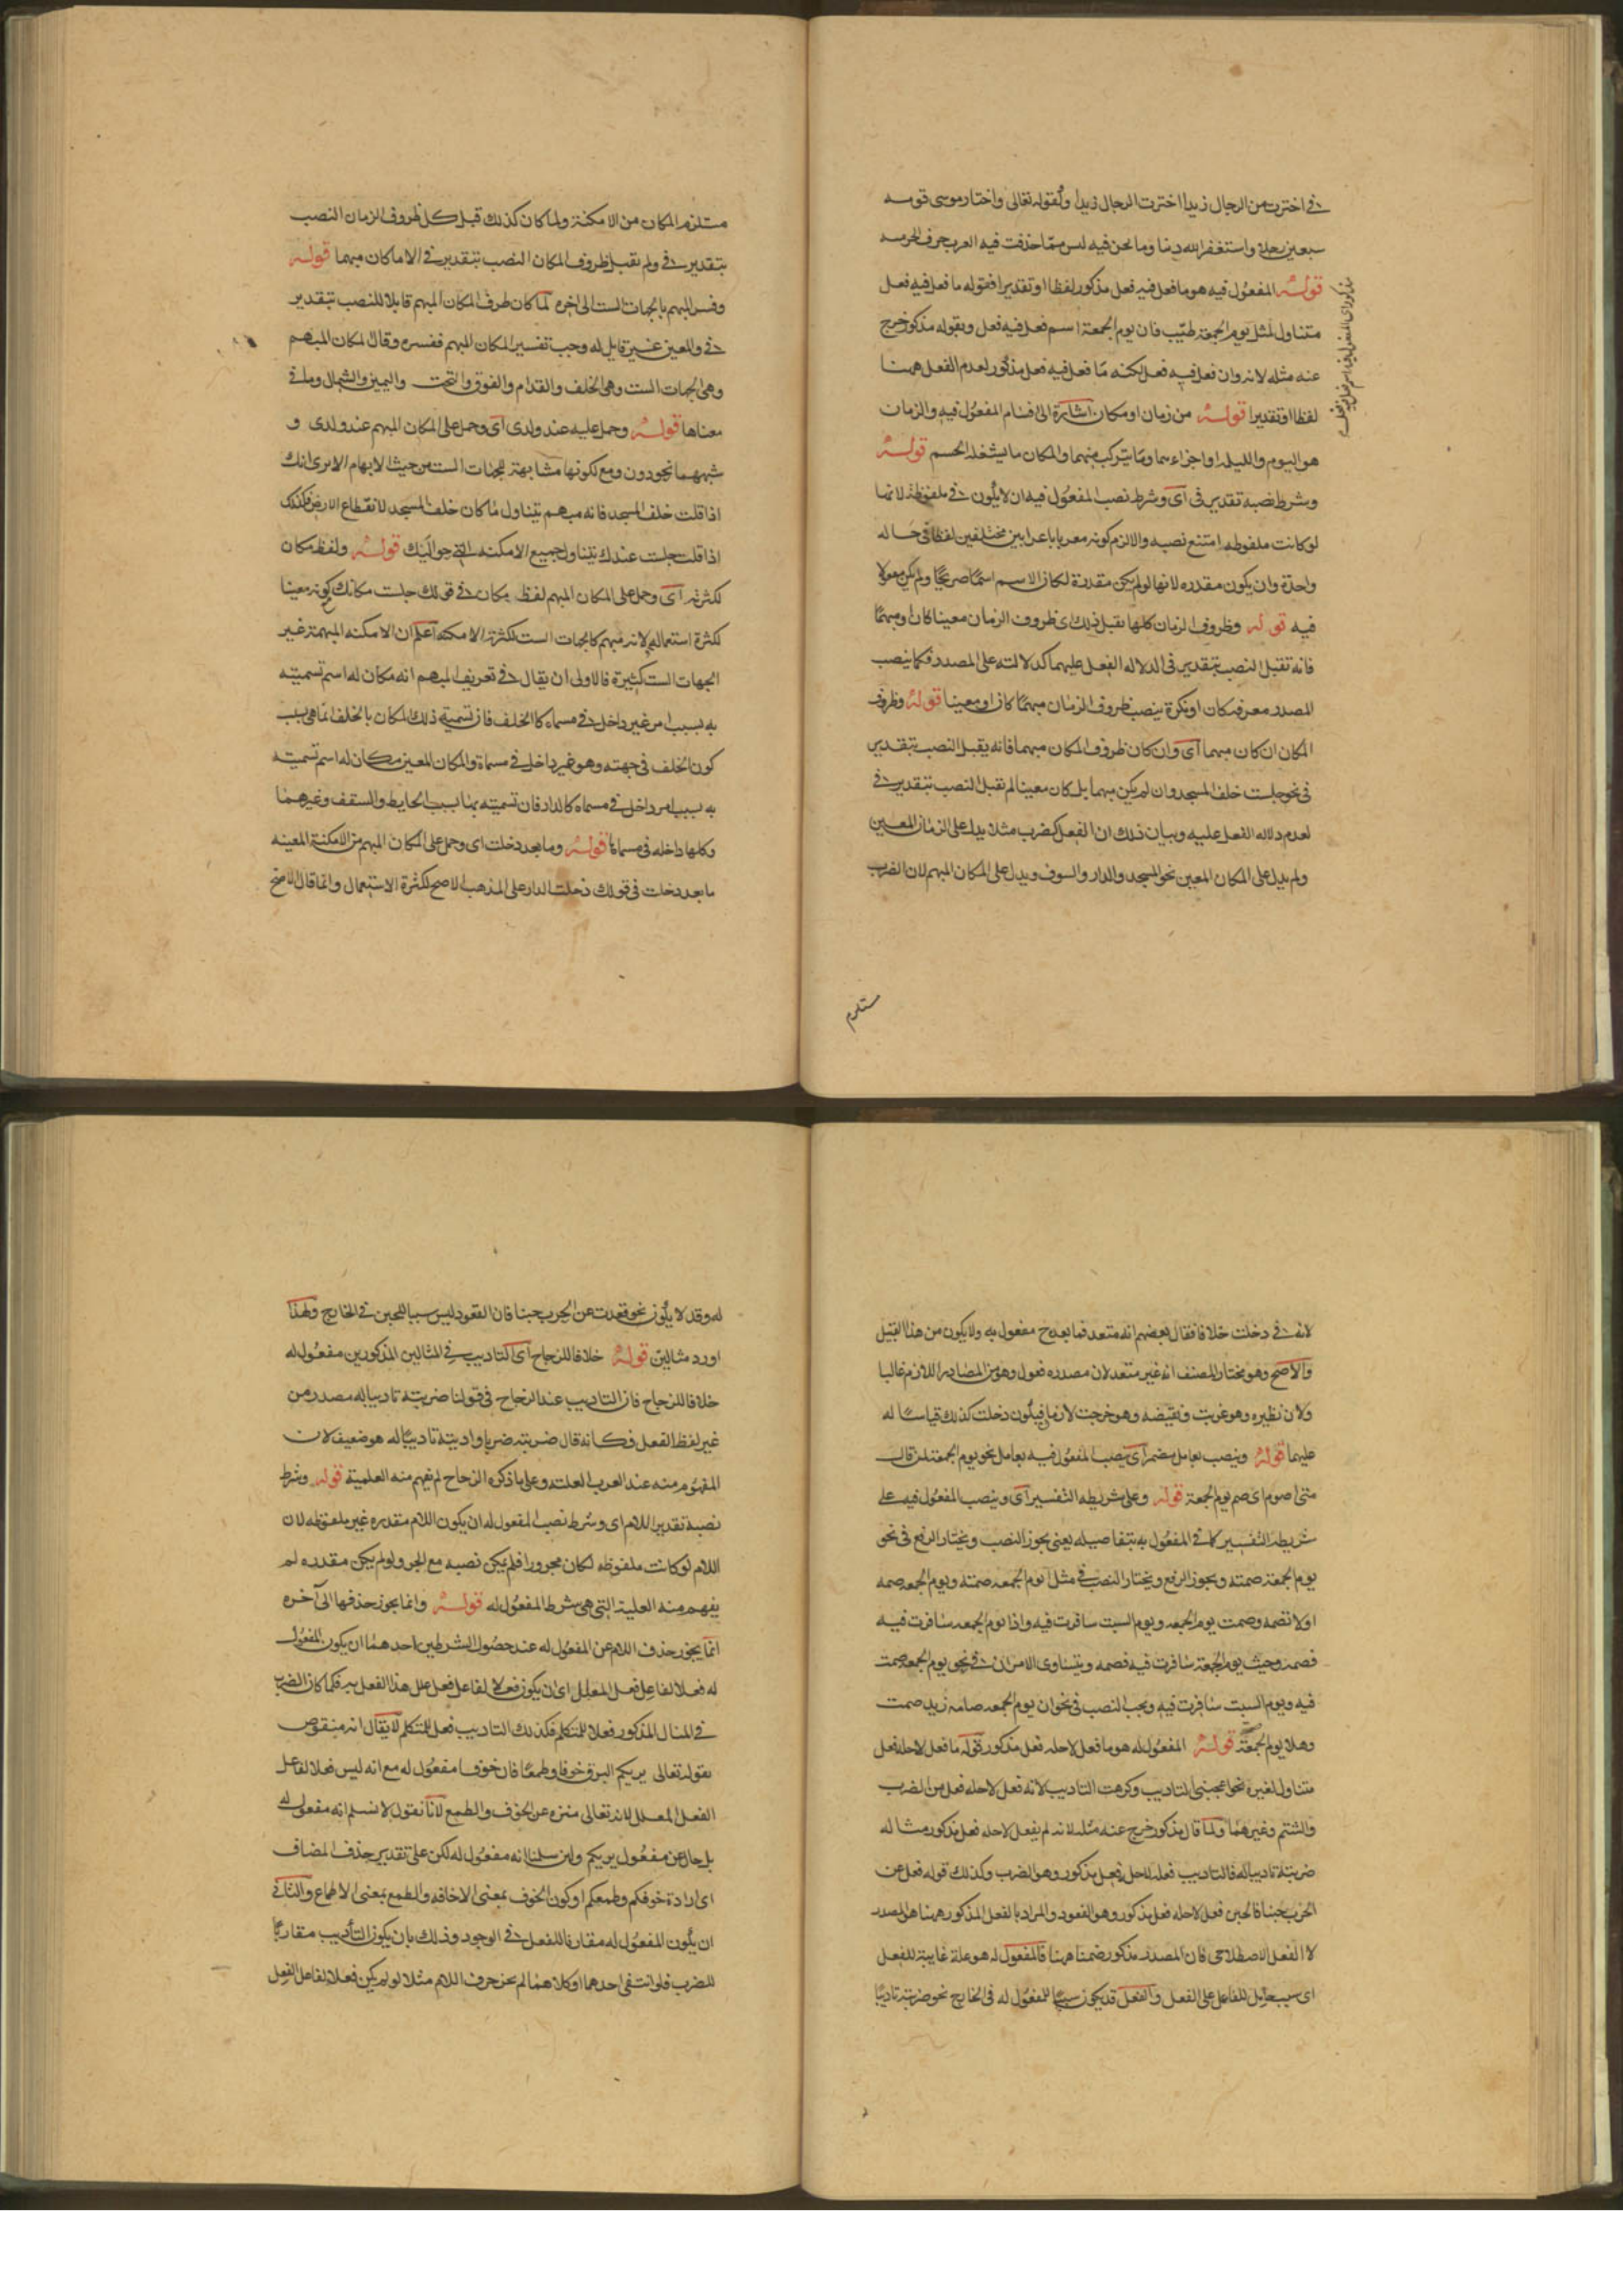 في اخترت من الرجال زيدا اخترت الرجال زيدا ولقوله تعالى واختار موسى قومه
سبعين رجلا واستغفر الله ذنبا وما نحن فيه ليس مما حذفت فيه العرب حرف الجر منه
قوله المفعول فيه هو ما فعل فيه فعل مذكور لفظا او تقديرا فقوله ما فعل فيه فعل
متناول لمثل يوم الجمعة طيب فان يوم الجمعة اسم فعل فيه فعل وبقوله مذكور خرج
عنه مثله لانه وان فعل فيه فعل لكنه ما فعل فيه فعل مذكور لعدم الفعل ههنا
لفظا او تقديرا قوله من زمان او مكان اشارة الى اقسام المفعول فيه والزمان
هو اليوم والليله او اجزاءهما وما يتركب منهما والمكان ما يشغله الجسم قوله
وشرط نصبه تقدير في اى وشرط نصب المفعول فيه ان لا يكون في ملفوظة لانها
لو كانت ملفوظه امتنع نصبه والا لزم كونه معربا باعرابين مختلفين لفظا في حاله
واحدة وان يكون مقدره لانها لو لم يكن مقدرة لكان الاسم اسما صريحا ولم يكن مفعولا
فيه قوله وظروف الزمان كلها تقبل ذلك اى ظروف الزمان معينا كان او مبهما
فانه تقبل النصب بتقدير في لدلاله الفعل عليهما كدلالته على المصدر فكما ينصب
المصدر معرفه كان او نكرة ينصب ظروف الزمان مبهما كان او معينا قوله وظروف
المكان ان كان مبهما اى وان كان ظروف المكان مبهما فانه يقبل النصب بتقدير
في نحو جلست خلف المسجد وان لم يكن مبهما بل كان معينا لم تقبل النصب بتقدير في
لعدم دلاله الفعل عليه وبيان ذلك ان الفعل كضرب مثلا يدل على الزمان المعين
ولم يدل على المكان المعين نحو المسجد والدار والسوق ويدل على المكان المبهم لان الضرب
مستلزم
مستلزم المكان من الامكنة ولما كان كذلك قبل كل ظروف الزمان النصب
بتقدير في ولم تقبل ظروف المكان النصب بتقدير في الا ما كان مبهما قوله
وفسر المبهم بالجهات الست الى اخره لما كان ظرف المكان المبهم قابلا للنصب بتقدير
في والمعين غير قابل له وجب تفسير المكان المبهم ففسره وقال المكان المبهم
وهى الجهات الست وهى الخلف والقدام والفوق والتحت واليمين والشمال وما في
معناها قوله وحمل عليه عند ولدى اى وحمل على المكان المبهم عند ولدى و
شبههما نحو دون ومع لكونها مشابهة للجهات الست من حيث الابهام الا يرى انك
اذا قلت خلف المسجد فانه مبهم يتناول ما كان خلف المسجد لانقطاع الارض فكذلك
اذا قلت جلست عندك يتناول جميع الامكنه التي حواليك قوله ولفظ مكان
لكثرته اى وحمل على المكان المبهم لفظ مكان في قولك جلست مكانك مع كونه معينا
لكثرة استعماله لانه مبهم كالجهات الست لكثرته الامكنه اعلم ان الامكنه المبهمة غير
الجهات الست كثيرة فالاولى ان يقال في تعريف المبهم انه مكان له اسم تسميته
به بسبب امر غير داخل في مسماه كالخلف فان تسمية ذلك المكان بالخلف انما هى بسبب
كون الخلف في جهته وهو غير داخل في مسماة والمكان المعين مكان له اسم تسميته
به بسبب امر داخل في مسماه كالدار فان تسميته بها بسبب الحايط والسقف وغيرهما
وكلها داخله في مسماها قوله وما بعد دخلت اى وحمل على المكان المبهم من الامكنة المعينه
ما بعد دخلت في قولك دخلت الدار على المذهب الاصح لكثرة الاستعمال وانما قال الاصح
لانه في دخلت خلافا فقال بعضهم انه متعد فما بعده ح مفعول به ولا يكون من هذا القبيل
والاصح وهو مختار المصنف انه غير متعد لان مصدره فعول وهو من المصادر اللازم غالبا
ولان نظيره وهو غربت ونقيضه وهو خرجت لازمان فيكون دخلت كذلك قياسا له
عليهما قوله وينصب بعامل مضمر اى ينصب المفعول فيه بعامل نحو يوم الجمعة لمن قال
متى اصوم اى صم يوم الجمعة قوله وعلى شريطه التفسير اى وينصب المفعول فيه على
شريطه التفسير كما في المفعول به بتفاصيله يعنى يجوز النصب ويختار الرفع في نحو
يوم الجمعة صمته ويجوز الرفع ويختار النصب في مثل ايوم الجمعه صمته ويوم الجمعه صمه
او لا تصمه وصمت يوم الجمعه ويوم السبت سافرت فيه واذا يوم الجمعه سافرت فيه
فصمه وحيث يوم الجمعة سافرت فيه فصمه ويتساوى الامران في نحو يوم الجمعه صمت
فيه ويوم السبت سافرت فيه ويجب النصب في نحو ان يوم الجمعه صامه زيد صمت
وهلا يوم الجمعة قوله المفعول له هو ما فعل لاجله فعل مذكور قوله ما فعل لاجله فعل
متناول لغيره نحو اعجبني التاديب وكرهت التاديب لانه فعل لاجله فعل من الضرب
والشتم وغيرهما ولما قال مذكور خرج عنه مثله لانه لم يفعل لاجله فعل مذكور مثاله
ضربته تاديبا له فالتاديب فعله لاجل فعل مذكور وهو الضرب وكذلك قوله قعد عن
الحرب جبنا فالجبن فعل لاجله فعل مذكور وهو القعود والمراد بالفعل المذكور ههنا هو المصدر
لا الفعل الاصطلاحى فان المصدر مذكور ضمنا ههنا فالمفعول له هو علة غايية للفعل
اى سبب حامل للفاعل على الفعل والفعل قد يكون سببا للمفعول له في الخارج نحو ضربته تاديبا
له وقد لا يكون نحو قعدت عن الحرب جبنا فان القعود ليس سببا للجبن في الخارج ولهذا
اورد مثالين قوله خلافا للزجاج اى التاديب في المثالين المذكورين مفعول له
خلافا للزجاج فان التاديب عند الزجاج في قولنا ضربته تاديبا له مصدر من
غير لفظ الفعل فكانه قال ضربته ضربا وادبته تاديبا له هو ضعيف لان
المفهوم منه عند العرب العلته وعلى ما ذكره الزجاج لم يفهم منه العلمية قوله وشرط
نصبه تقدير اللام اى وشرط نصب المفعول له ان يكون اللام مقدره غير ملفوظه لان
اللام لو كانت ملفوظه لكان مجرورا فلم يمكن نصبه مع الجر ولو لم يكن مقدره لم
يفهم منه العلية التي هى شرط المفعول له قوله وانما يجوز حذفها الى آخره
انما يجوز حذف اللام عن المفعول له عند حصول الشرطين احدهما ان يكون المفعول
له فعلا لفاعل فعل المعلل اى ان يكون فعلا لفاعل فعل علل هذا الفعل به فكما كان الضرب
في المثال المذكور فعلا للمتكلم فكذلك التاديب فعل للمتكلم لا يقال انه منقوض
بقوله تعالى يريكم البرق خوفا وطمعا فان خوفا مفعول له مع انه ليس فعلا لفاعل
الفعل المعلل لانه تعالى منزه عن الخوف والطمع لانا نقول لا نسلم انه مفعول له
بل حال عن مفعول يريكم ولئن سلمنا انه مفعول له لكن على تقدير حذف المضاف
اى ارادة خوفكم وطمعكم او كون الخوف بمعنى الاخافه والطمع بمعنى الاطماع والثاني
ان يكون المفعول له مقارنا للفعل في الوجود وذلك بان يكون التأديب مقارنا
للضرب فلو انتفى احدهما او كلاهما لم يجز حذف اللام مثلا لو لم يكن فعلا لفاعل الفعل